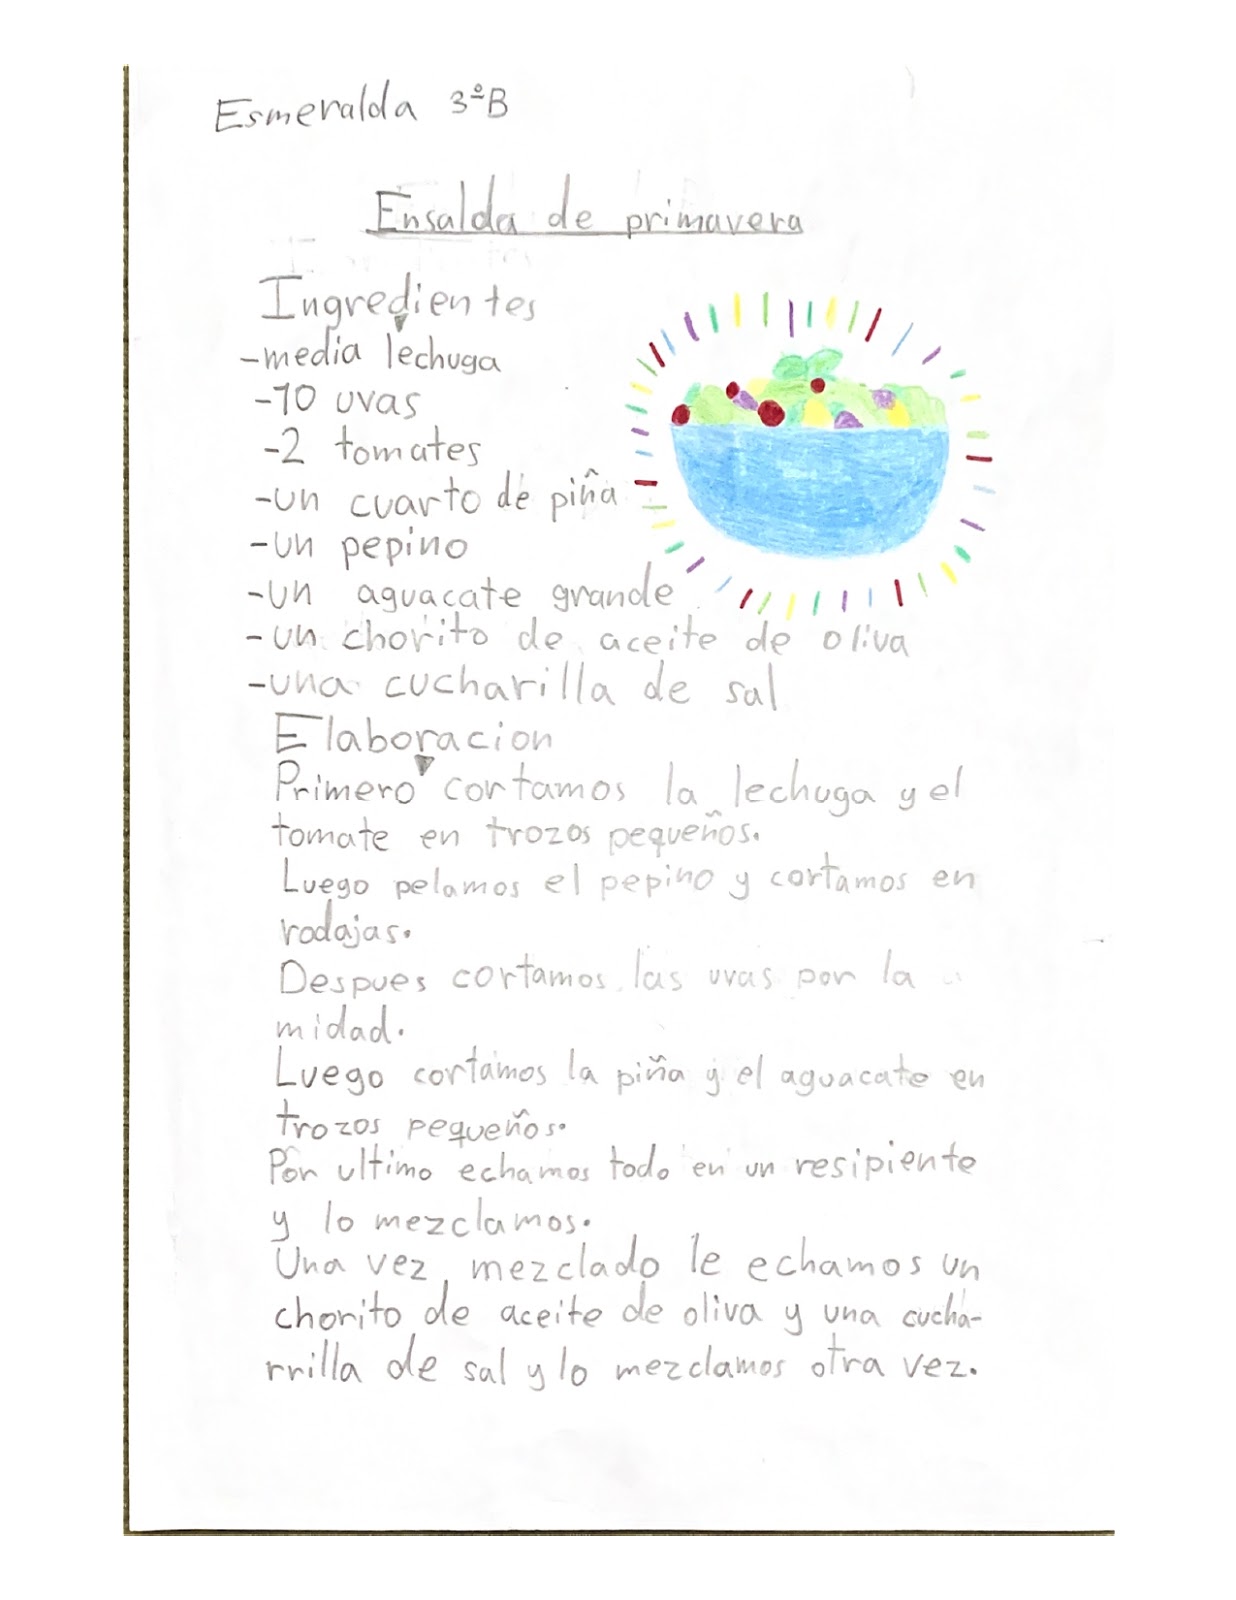 Esmeralda 3ºB
Ensalda de primavera
Ingredientes
-media lechuga
-10 uvas
-2 tomates
-un cuarto de piña
-un pepino
-un aguacate grande
-un chorito de aceite de oliva
-una cucharilla de sal
Elaboracion
Primero cortamos la lechuga y el
tomate en trozos pequeños.
Luego pelamos el pepino y cortamos en
rodajas.
Despues cortamos las uvas por la
midad.
Luego cortamos la piña y el aguacate en
trozos pequeños.
Por ultimo echamos todo en un resipiente
y lo mezclamos.
Una vez mezclado le echamos un
chorito de aceite de oliva y una cucha-
rrilla de sal y lo mezclamos otra vez.